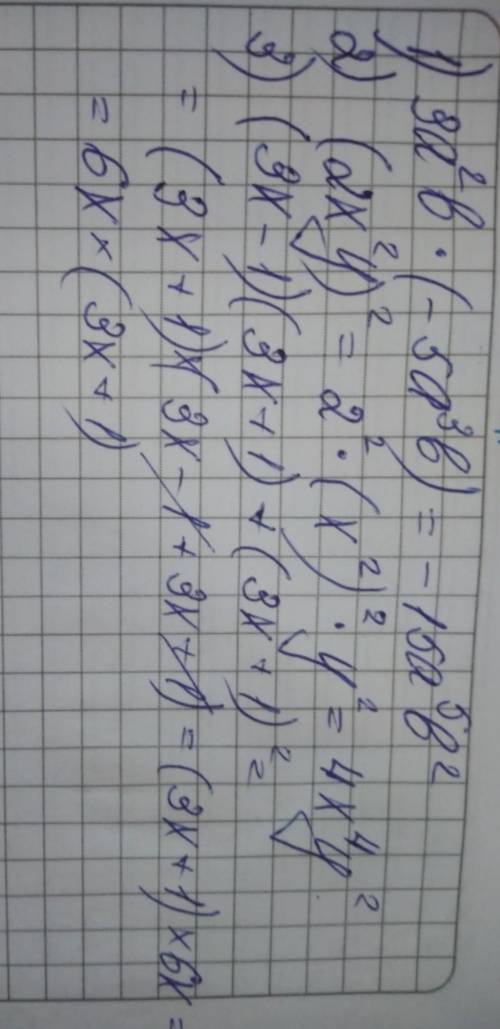 1) 3a²b · (-5a³b) = -15a⁵b²
2) (2x²y)² = 2² · (x²)² · y² = 4x⁴y²
3) (3x-1)(3x+1)+(3x+1)² =
= (3x+1)×(3x-1+3x+1) = (3x+1)×6x =
= 6x×(3x+1)